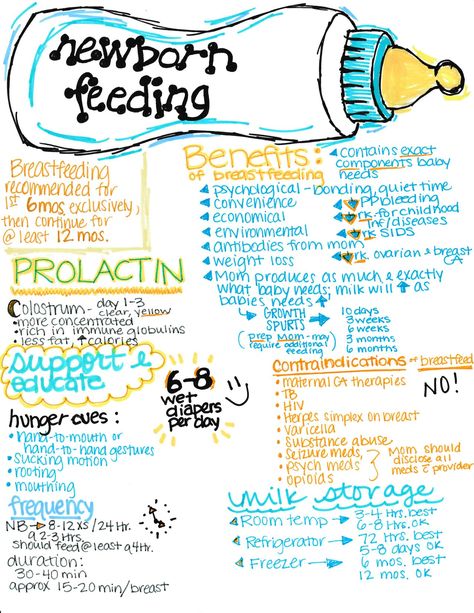 newborn
feeding
Breastfeeding
recommended for
1st 6 mos. exclusively,
then continue for
@ least 12 mos.
Benefits:
of breastfeeding
contains exact
components baby
needs
psychological - bonding, quiet time
convenience
economical
environmental
antibodies from mom
weight loss
↓ PP bleeding
↓ risk for childhood
inf/diseases
↓ risk SIDS
↓ risk ovarian & breast
CA
Mom produces as much & exactly
what baby needs; milk will ↑ as
babies needs ↑
↳ GROWTH
SPURTS
10 days
3 weeks
6 weeks
3 months
6 months
(prep Mom - may
require additional
feeding)
PROLACTIN
Colostrum - day 1-3
clear, yellow
more concentrated
rich in immune globulins
less fat, ↑ calories
support &
educate
6-8
wet
diapers
per day
hunger cues:
hand-to-mouth or
hand-to-hand gestures
sucking motion
rooting
mouthing
frequency
NB → 8-12 xs / 24 Hr.
q 2-3 Hrs.
should feed @ least q 4 Hr.
duration:
30-40 min
approx 15-20 min/breast
Contraindications of breastfeed
NO!
maternal CA therapies
TB
HIV
Herpes simplex on breast
varicella
Substance abuse
Seizure meds,
psych meds
opioids
Mom should
disclose all
meds to provider
milk storage
Room temp → 3-4 Hrs. best
6-8 Hrs. OK
Refrigerator → 72 Hrs. best
5-8 days OK
Freezer → 6 mos. best
12 mos. OK